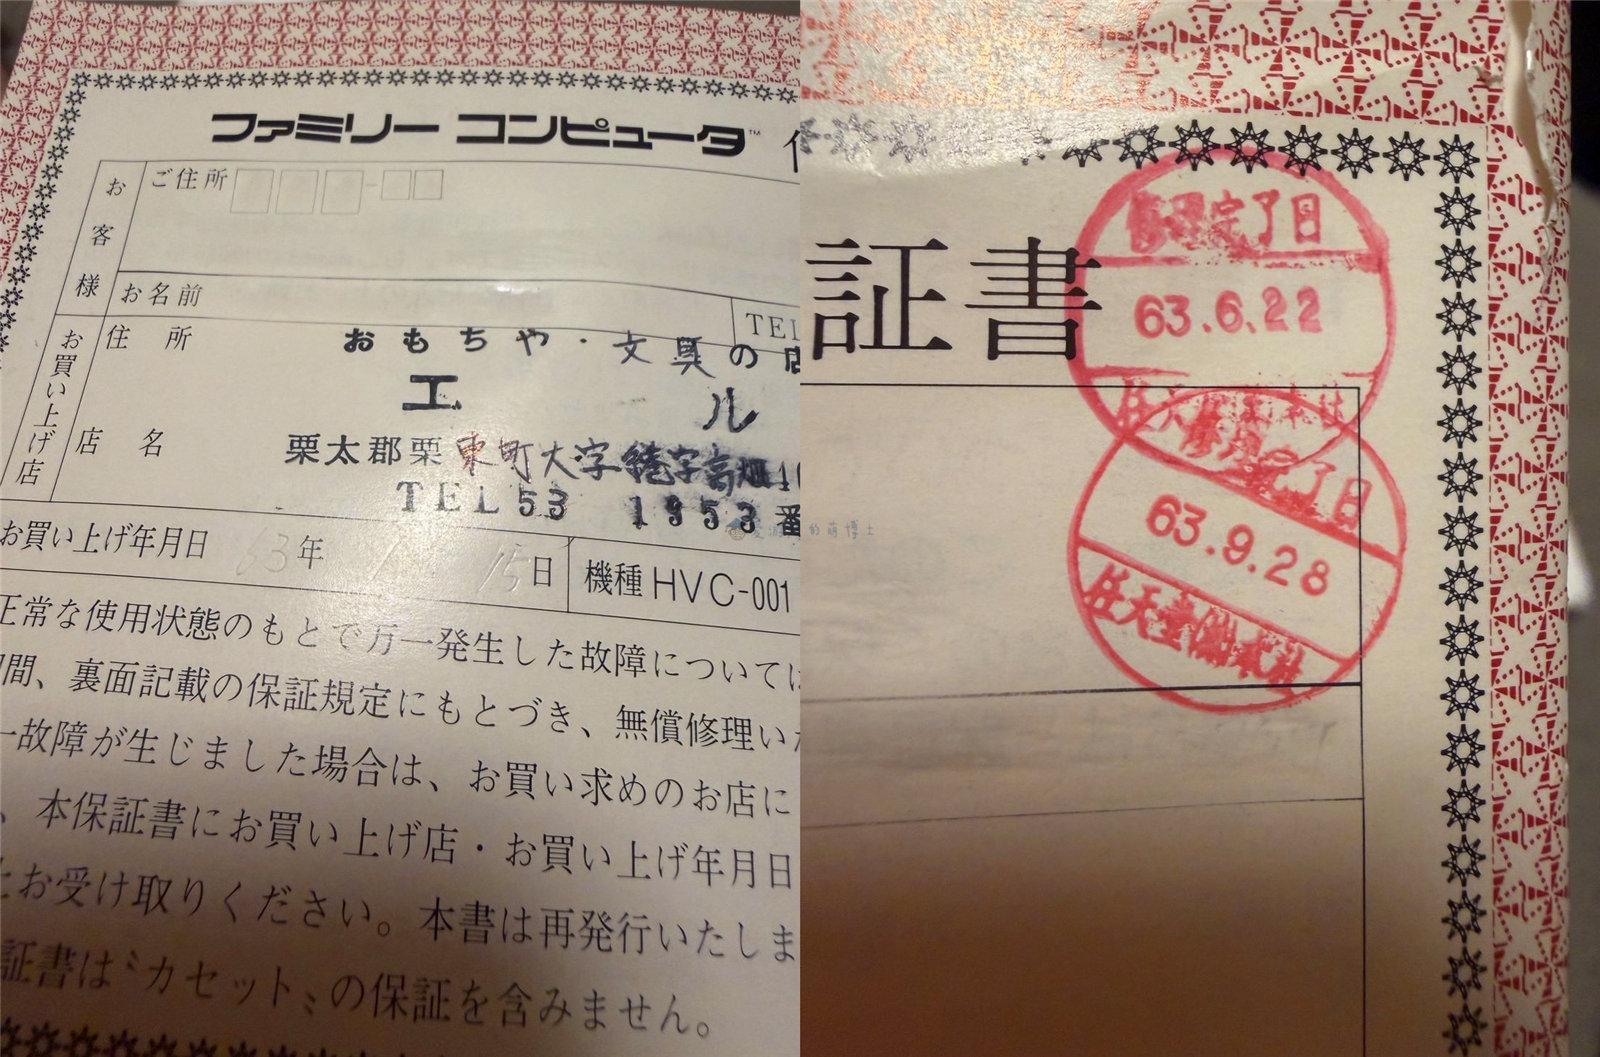 ファミリー コンピュータ™
お客様
ご住所
お名前
TEL
お買い上げ店
住所
店名
おもちや・文具の店
エル
栗太郡栗東町大字綣字高畑
TEL 53 1953番
お買い上げ年月日 63年 15日
機種 HVC-001
正常な使用状態のもとで万一発生した故障については
間、裏面記載の保証規定にもとづき、無償修理い
故障が生じました場合は、お買い求めのお店に
、本保証書にお買い上げ店・お買い上げ年月日
お受け取りください。本書は再発行いたしま
証書は〝カセット〟の保証を含みません。
証書
修理完了日
63.6.22
修理完了日
63.9.28
任天堂㈱本社
的萌博士